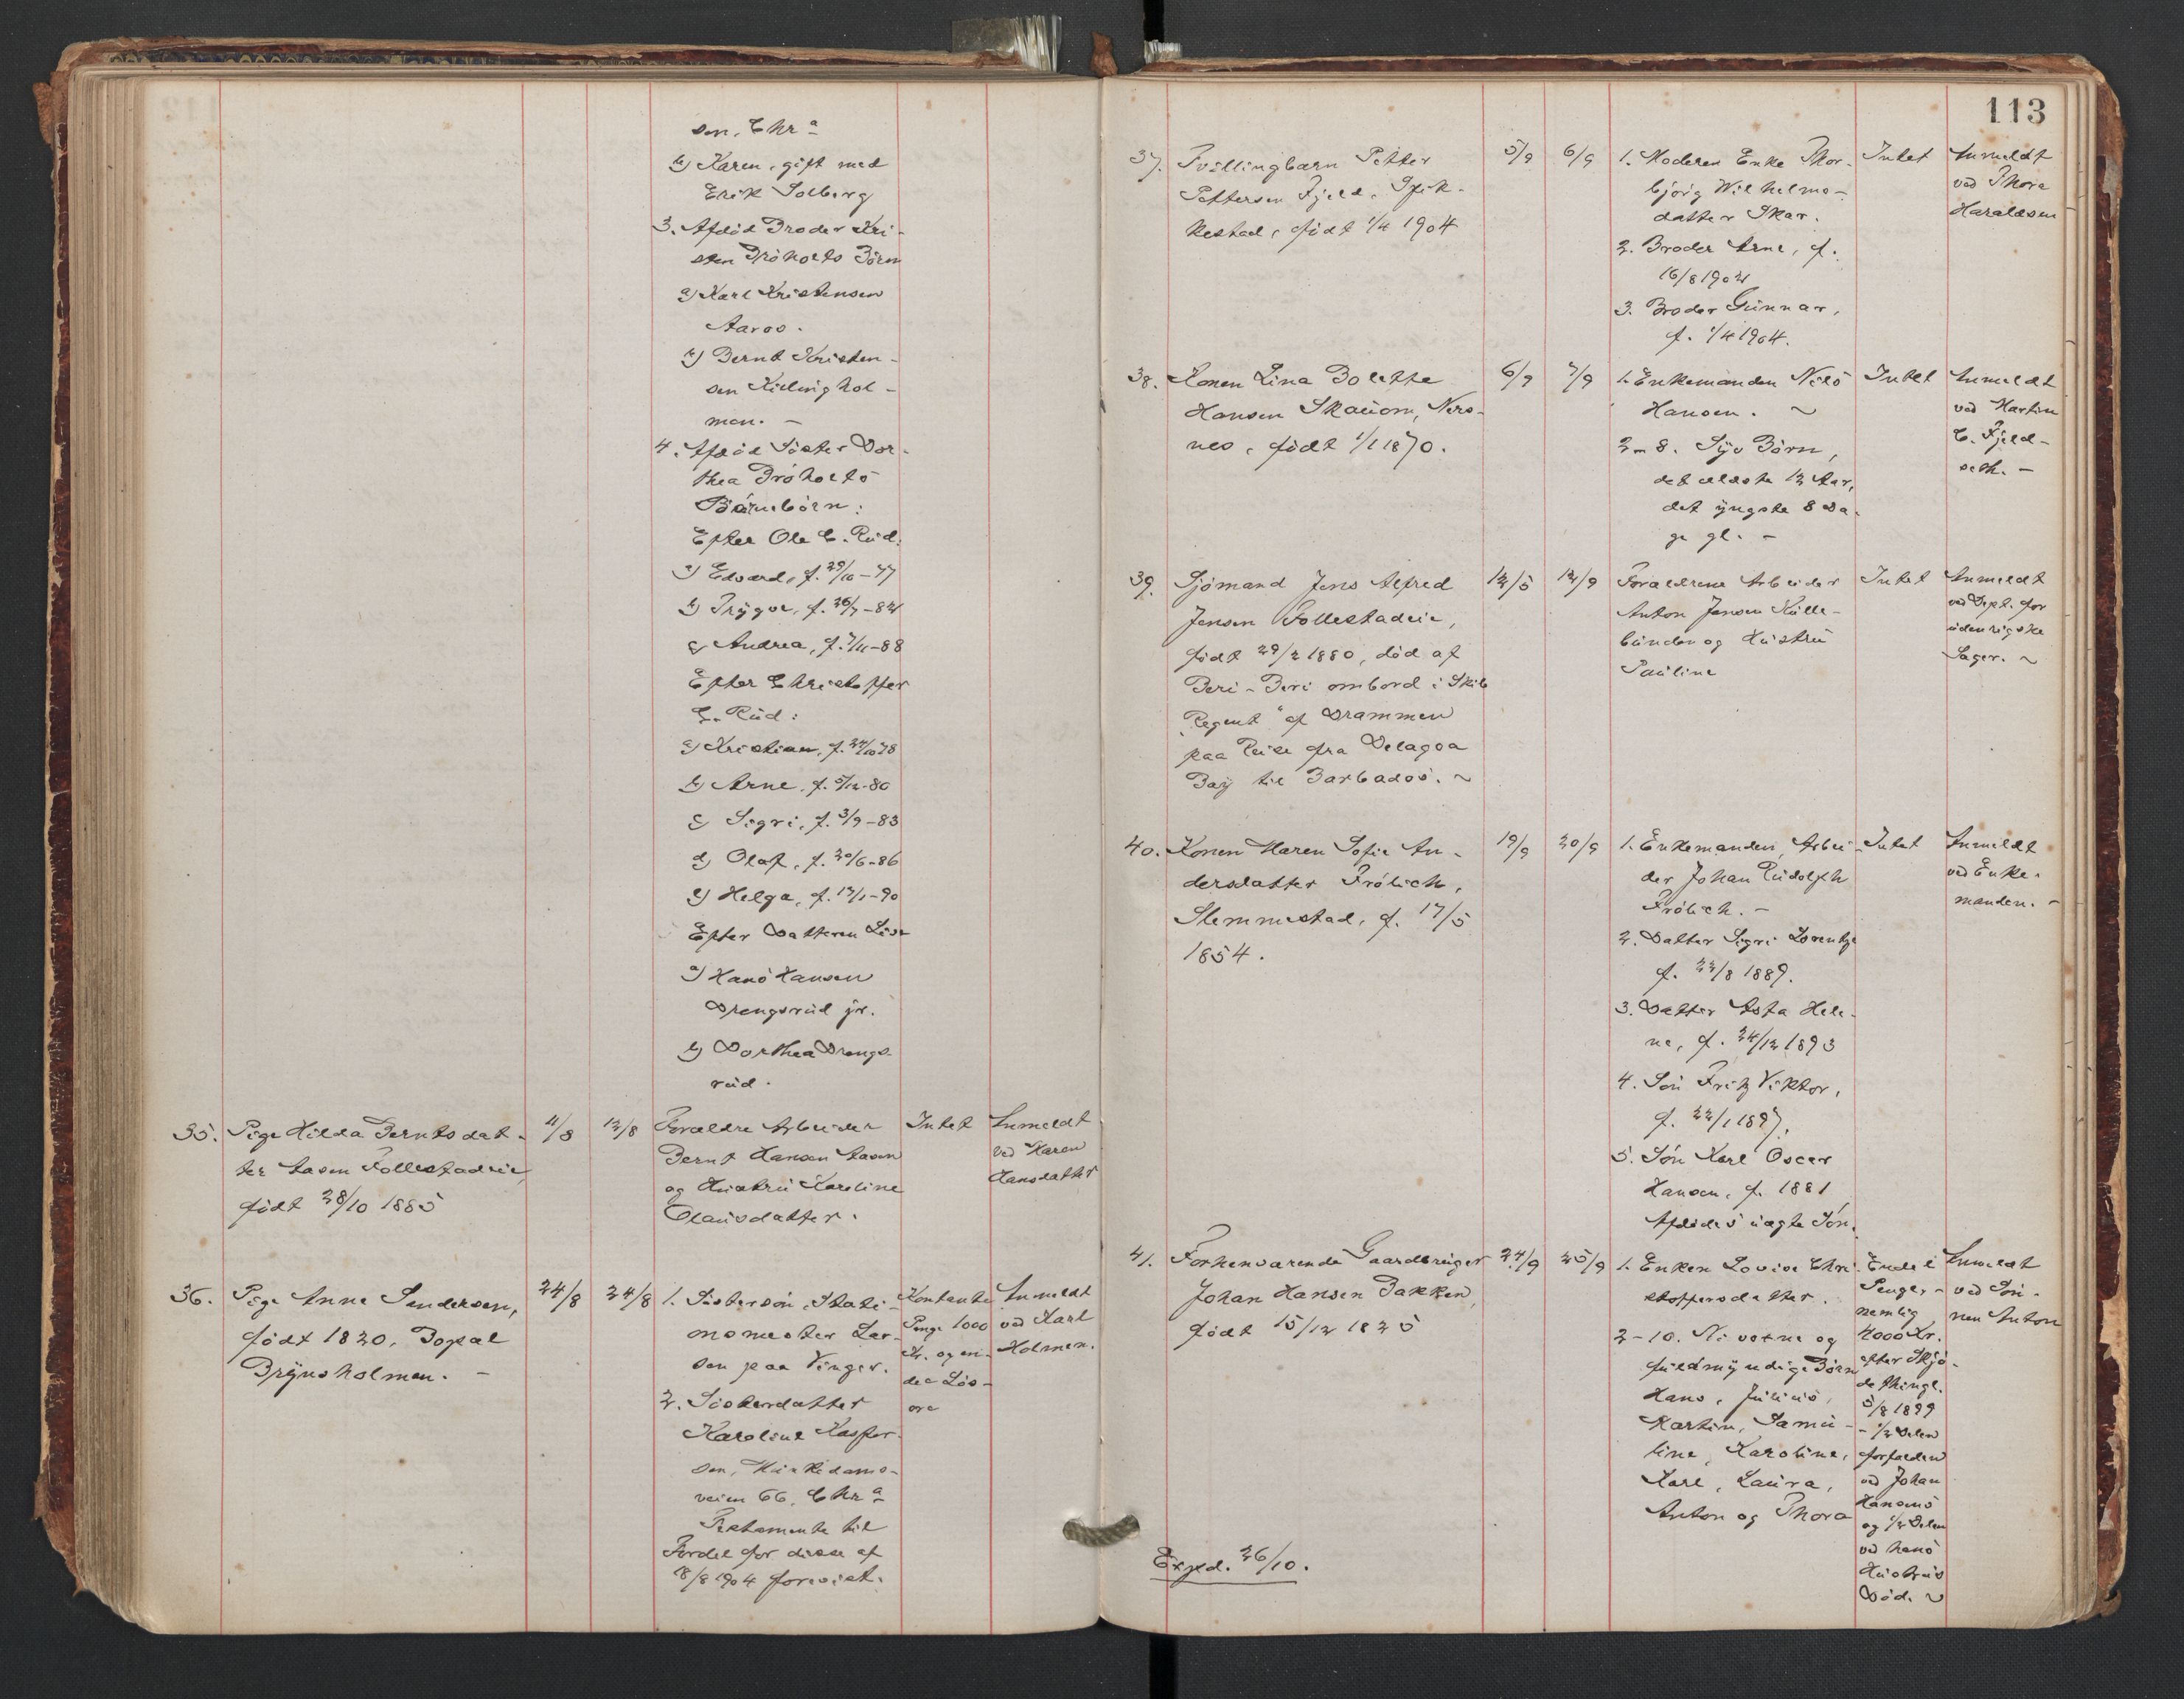 sen, Chr.a
b) Karen, gift med
Erik Solberg
3. Afdöd Broder Kri-
sten Bröholts Börn
a) Karl Kristensen
Aaros.
b) Bernt Kristen-
sen Killinghol-
men. -
4. Afdöd Söster Dor-
thea Bröholts
Börnebörn:
Efter Ole C. Rud:
a) Edvard, f. 29/10-77
b) Trygve, f. 26/7-82
c) Andrea, f. 7/11-88
Efter Christoffer
C. Rud:
a) Kristian, f. 24/10 78
b) Arne, f. 5/12-80
c) Sigri, f. 3/9-83
d) Olaf, f. 20/6-86
e) Helga, f. 12/1-90
Efter Datteren Live
a) Hans Hansen
Drengsrud jr.
b) Dorthea Drengs-
rud.
35. Pige Hilda Berntsdat-
ter Aasen Follestadeie,
födt 28/10 1885
11/8
12/8
Forældre Arbeider
Bernt Hansen Aasen
og Hustru Karoline
Olausdatter.
Intet
Anmeldt
ved Karen
Hansdatter
36. Pige Anne Sandersen,
födt 1820, Bopæl
Brynsholmen. -
24/8
24/8
1. Söstersön, Stati-
onsmester Lar-
sen paa Vinger.
2. Sösterdatter
Karoline Kasper-
sen, Munkedams-
veien 66, Chr.a
Testamente til
Fordel for disse af
18/8 1904 forevist.
Kontante
Penge 1000
Kr. og en-
del Lös-
öre
Anmeldt
ved Karl
Holmen.
113
37. Tvillingbarn Petter
Pettersen Fjeld, Spik-
kestad, födt 1/4 1904
5/9
6/9
1. Moderen Enke Thor-
björg Wilhelms-
datter Skar.
2. Broder Arne, f.
16/8 1902
3. Broder Gunnar,
f. 1/4 1904.
Intet
Anmeldt
ved Thora
Haraldsen
38. Konen Lina Bolette
Hansen Skauom, Ners-
nes, födt 1/1 1870.
6/9
7/9
1. Enkemanden Nils
Hansen.
2-8. Syv Börn,
det ældste 12 Aar,
det yngste 8 Da-
ge gl. -
Intet
Anmeldt
ved Martin
C. Fjeld-
seth. -
39. Sjömand Jens Alfred
Jensen Follestadeie,
födt 29/2 1880, död af
Beri-Beri ombord i Skib
"Regent" af Drammen
paa Reise fra Delagoa
Bay til Barbados.
12/5
12/9
Forældrene Arbeider
Anton Jensen Kulle-
bunden og Hustru
Pauline
Intet
Anmeldt
ved Dept. for
udenrigske
Sager.
40. Konen Maren Sofie An-
dersdatter Frölich,
Slemmestad, f. 17/5
1854.
19/9
20/9
1. Enkemanden, Arbei-
der Johan Rudolph
Frölich. -
2. Datter Sigri Lorentze
f. 22/8 1889.
3. Datter Asta Hele-
ne, f. 24/12 1893
4. Sön Fritz Viktor,
f. 22/1 1897.
5. Sön Karl Oscar
Hansen, f. 1881
Afdödes uægte Sön.
Intet
Anmeldt
ved Enke-
manden. -
41. Forhenværende Gaardbruger
Johan Hansen Bakken,
födt 15/12 1825
24/9
25/9
1. Enken Lovise Chri-
stoffersdatter.
2-10. Ni voxne og
fuldmyndige Börn
Hans, Julius,
Martin, Samu-
line, Karoline,
Karl, Laura,
Anton og Thora
Endel
Penge,
nemlig
4000 Kr.
efter Skjö-
de thingl.
5/8 1899
- 1/2 Delen
forfalden
ved Johan
Hansens
og 1/2 Delen
ved hans
Hustrus
Död.
Anmeldt
ved Sön-
nen Anton
Exped. 26/10.